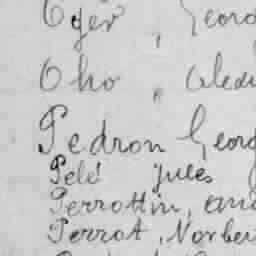 Oger, Georg
Oho, Aled
Pedron Georg
Pelé Jules
Perrottin, ama
Perrot, Norber